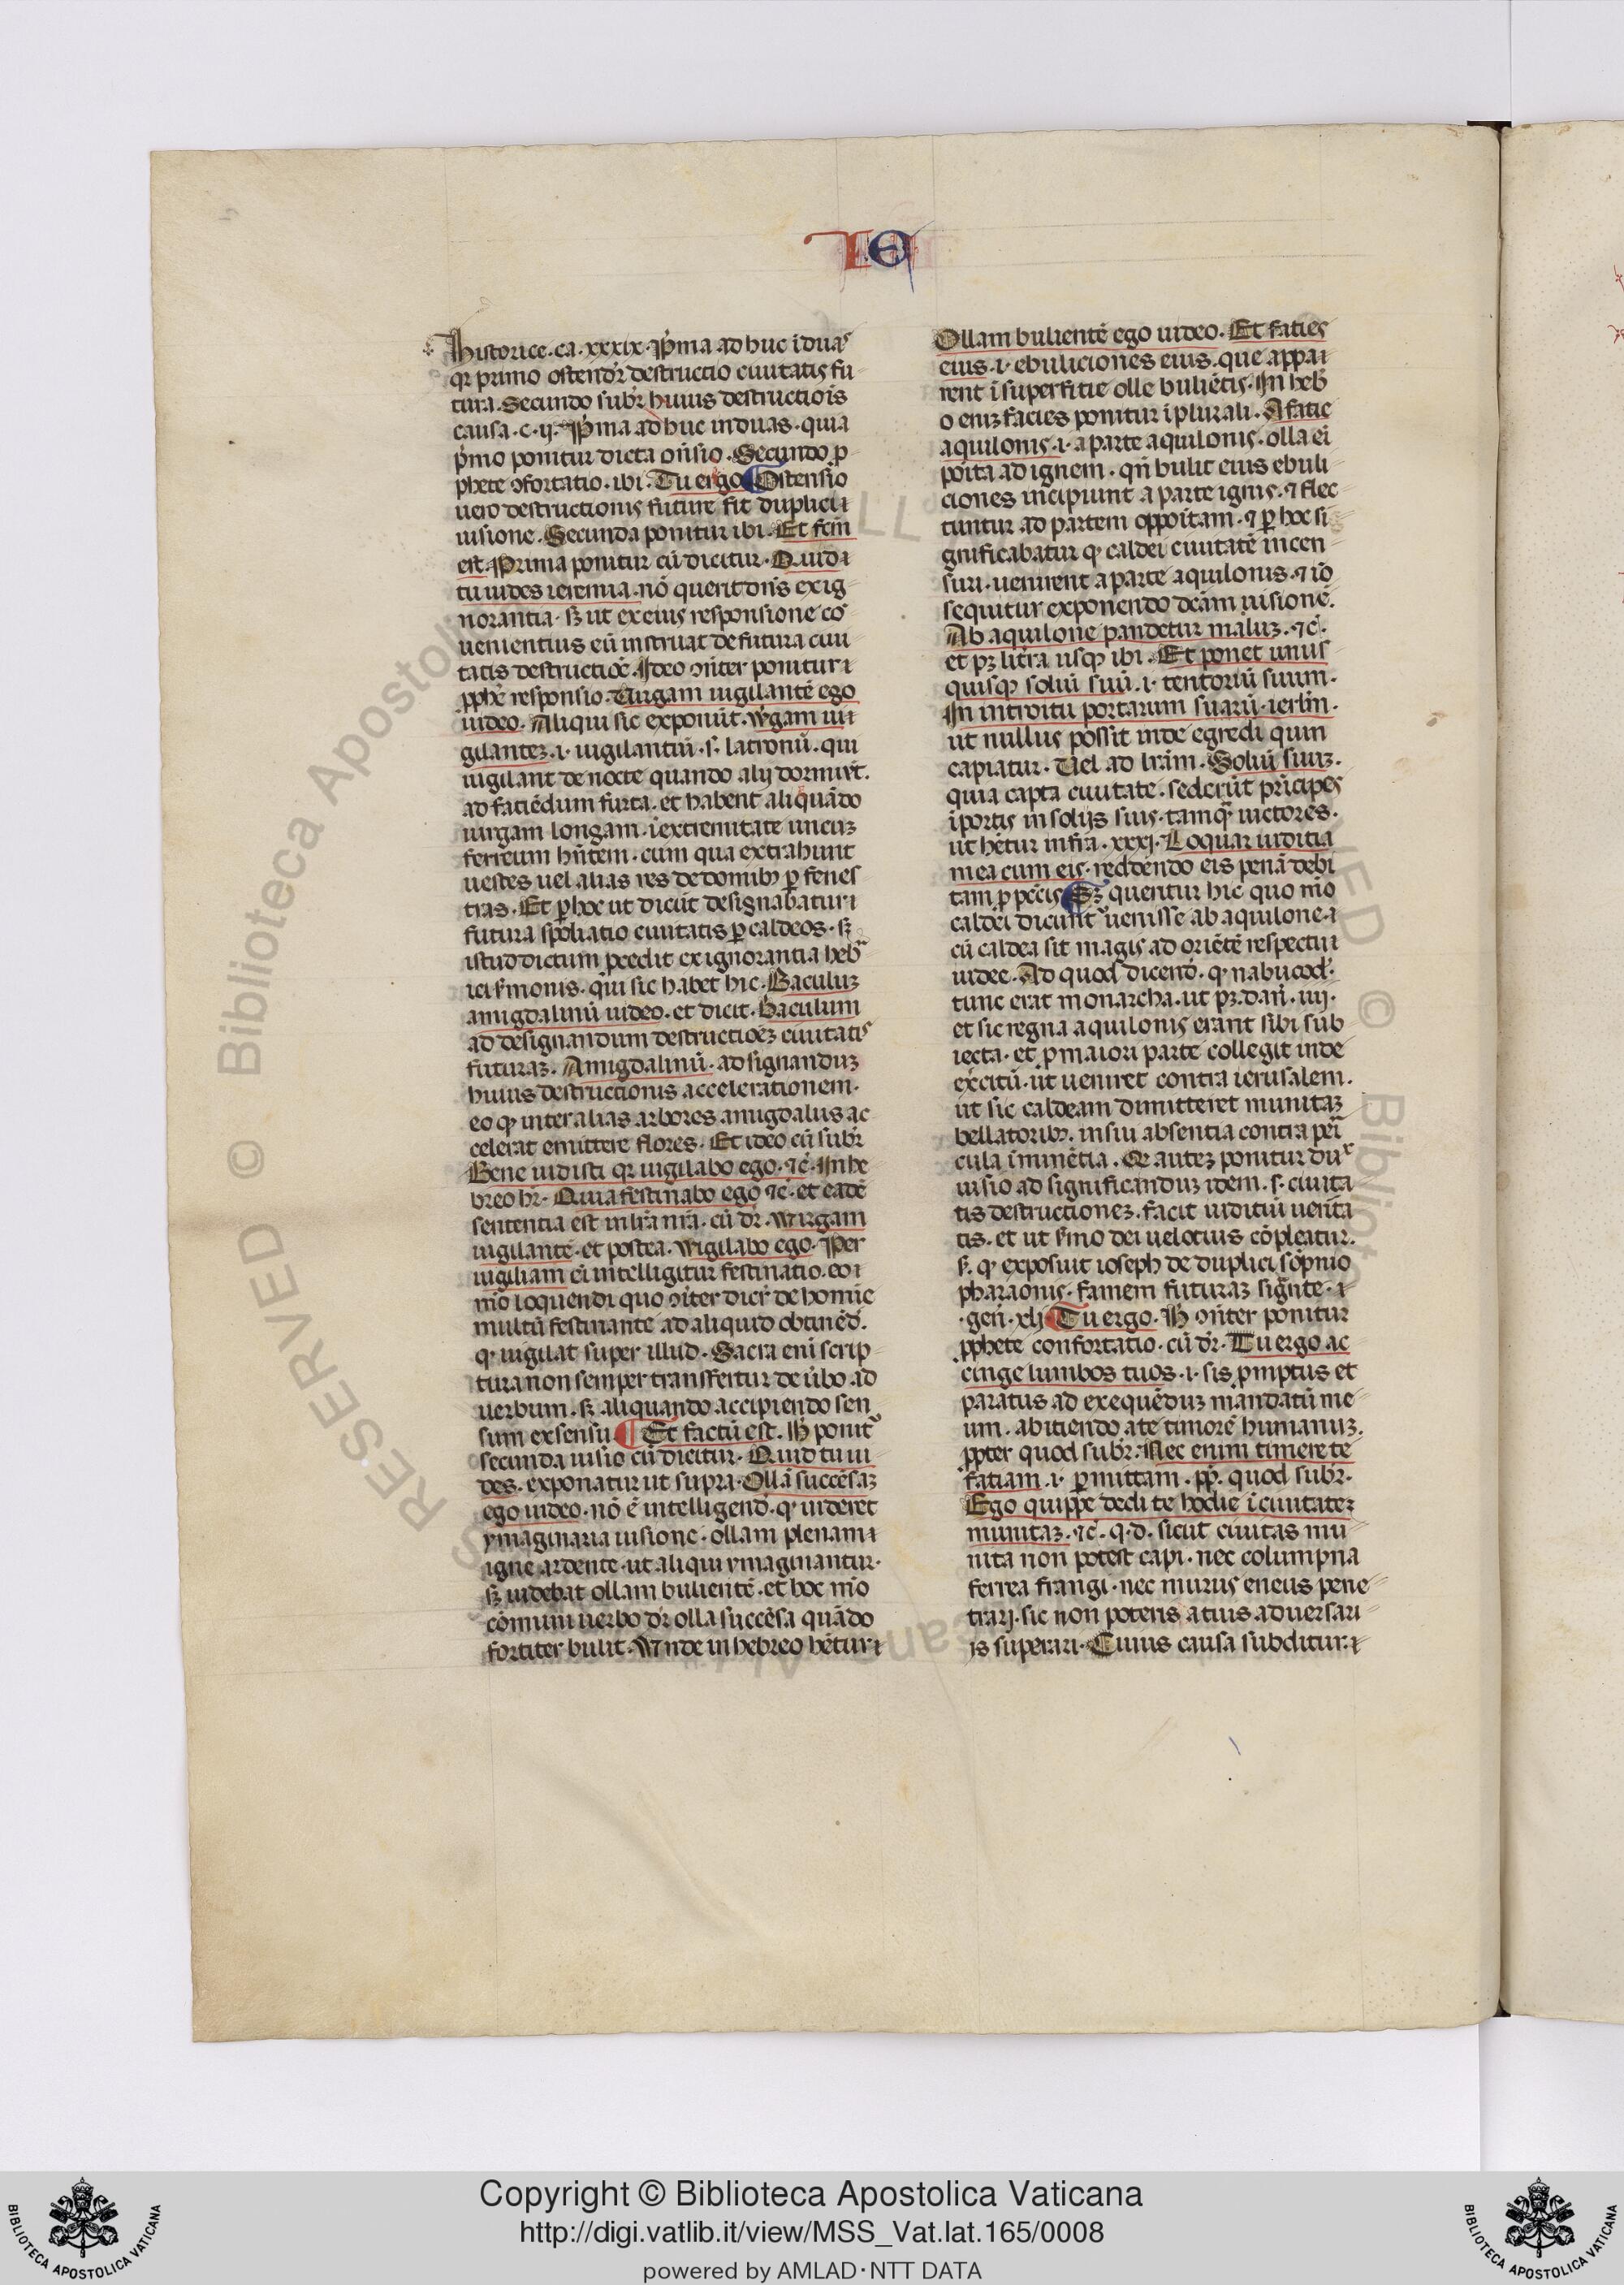 IE
historice. ca. xxxix. P̾ma adhuc ī duas
qr primo ostendr̄ destructio ciuitatis fu
tura. Secundo subr̄ huius destructiōis
causa. c. ij. P̾ma adhuc in duas. quia
p̾mo ponitur dicta oñsio. Secundo ꝓ
phete ↄfortatio. ibi. Tu ergo Ostensio
uero destructionis future fit duplici
uisione. Secunda ponitur ibi. Et fc̄m
est. Prima ponitur cū dicitur. Quid
tu uides ieremia. nō querit dn̄s ex ig
norantia. sꝫ ut ex eius responsione cō
uenientius eū instruat de futura ciui
tatis destructiōe. Ideo ↄñter ponitur
ꝓphē responsio. Uirgam uigilantē ego
uideo. Aliqui sic exponūt. uͥgam ui
gilanteꝫ. i. uigilantiū. s. latronū. qui
uigilant de nocte quando alij dormiūt.
ad faciēdum furta. et habent aliquādo
uirgam longam. ī extremitate uncuꝫ
ferreum hñtem. cum qua extrahunt
uestes uel alias res de domibꝰ ꝑ fenes
tras. Et ꝑ hoc ut dicūt designabatur
futura spoliatio ciuitatis ꝑ caldeos. sꝫ
istud dictum ꝓcedit ex ignorantia heb
ici s̾monis. qui sic habet hic. Baculuꝫ
amigdalinū uideo. et dicit. baculum
ad designandum destructiōeꝫ ciuitatis
futuraꝫ. Amigdalinū. ad signanduꝫ
huius destructionis accelerationem.
eo ꝙ inter alias arbores amigdalus ac
celerat emittere flores. Et ideo cū subr̄
Bene uidisti qr uigilabo ego. ⁊c̄. In he
breo hr̄. Quia festinabo ego ⁊c̄. et eadē
sententia est in lr̄a nr̄a. cū dr̄. Uirgam
uigilantē. et postea. Uigilabo ego. Per
uigiliam eī intelligitur festinatio. eo
mō loquendi quo ↄñter dicr̄ de homīe
multū festinante ad aliquid obtinēd̄.
ꝙ uigilat super illud. Sacra enī scrip
tura non semper transfertur de ūbo ad
uerbum. sꝫ aliquando accipiendo sen
sum ex sensu ¶ Et factū est. H̾ ponitᷣ
secunda uisio cū dicitur. Quid tu ui
des. exponatur ut supra. Ollā succēsaꝫ
ego uideo. nō ē intelligend̄. ꝙ uideret
ymaginaria uisione. ollam plenam
igne ardente. ut aliqui ymaginantur.
sꝫ uidebat ollam bulientē. et hoc mō
cōmuni uerbo dr̄ olla succēsa quādo
fortiter bulit. Unde in hebreo hētur
Ollam bulientē ego uideo. Et facies
eius. i. ebuliciones eius. que appa
rent ī superficie olle buliētis. In heb
o eniꝫ facies ponitur ī plurali. A facie
aquilonis. i. a parte aquilonis. olla eī
poīta ad ignem. qn̄ bulit eius ebuli
ciones incipiunt a parte ignis. ⁊ flec
tuntur ad partem oppoītam. ⁊ ꝑ hoc si
gnificabatur ꝙ caldei ciuitatē incen
suri. uenirent a parte aquilonis. ⁊ iō
sequitur exponendo dc̄am uisionē.
Ab aquilone pandetur maluꝫ. ⁊c̄.
et pꝫ lit̄ra usꝙ ibi. Et ponet unus
quisꝙ soliū suū. i. tentoriū suum.
In introitu portarum suarū. ierlm̄.
ut nullus possit inde egredi quin
capiatur. Uel ad lrām. Soliū suuꝫ.
quia capta ciuitate. sederūt prīcipes
ī portis in solijs suis. tamq̄ uictores.
ut hētur infra. xxxj. Loquar iuditia
mea cum eis. reddendo eis penā debi
tam ꝓ pc̄cīs Sꝫ queritur hic quo mō
caldei dicunt̾ uenisse ab aquilone.
cū caldea sit magis ad oriētē respectu
iudee. Ad quod dicend̄. ꝙ nabucod̄.
tunc erat monarcha. ut pꝫ. dan̄. iiij.
et sic regna aquilonis erant sibi sub
iecta. et ꝓ maiori parte collegit inde
ex̾citū. ut ueniret contra ierusalem.
ut sic caldeam dimitteret munitaꝫ
bellatoribꝫ. in sui absentia contra peri
cula īminētia. Qr auteꝫ ponitur du
uisio ad significanduꝫ idem. s. ciuita
tis destructioneꝫ. facit iuditiū uerita
tis. et ut s̾mo dei uelocius cōpleatur.
s. ꝙ exposuit ioseph de duplici sōpnio
pharaonis. famem futuraꝫ signte.
. gen̄. xlj Tu ergo. H̾ ↄñter ponitur
ꝓphete confortatio. cū dr̄. Tu ergo ac
cinge lumbos tuos. i. sis ꝓmptus et
paratus ad exequēduꝫ mandatū me
um. abiciendo a te timorē humanuꝫ.
ꝓpter quod subr̄. Nec enim timere te
faciam. i. ꝑmittam. ꝓp̄. quod subr̄.
Ego quippe dedi te hodie ī ciuitateꝫ
munitaꝫ. ⁊c̄. q. d. sicut ciuitas mu
nita non potest capi. nec columpna
ferrea frangi. nec murus eneus pene
trarj. sic non poteris a tuis aduersari
is superari. Cuius causa subditur.
Copyright © Biblioteca Apostolica Vaticana
http://digi.vatlib.it/view/MSS_Vat.lat.165/0008
powered by AMLAD·NTT DATA
BIBLIOTECA APOSTOLICA VATICANA
BIBLIOTECA APOSTOLICA VATICANA